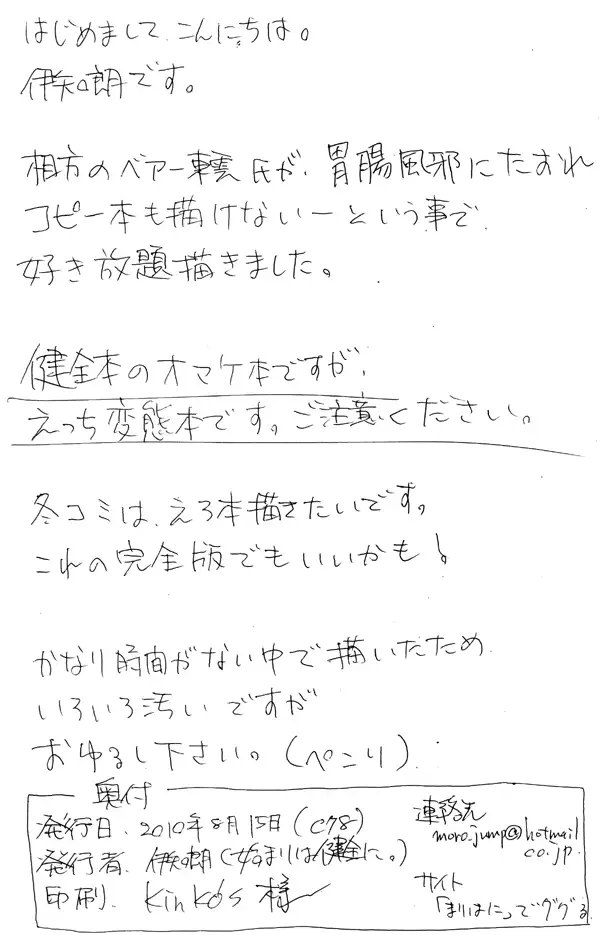 はじめまして、こんにちは。
伊矢口朗です。
相方のベアー轟氏が、胃腸風邪にたおれ
コピー本も描けないーという事で
好き放題描きました。
健全本のオマケ本ですが、
えっち変態本です。ご注意ください。
冬コミは、えろ本描きたいです。
これの完全版でもいいかも!
かなり時間がない中で描いたため
いろいろ汚いですが
おゆるし下さい。(ぺこり)
奥付
発行日、2010年8月15日(C78)
発行者、伊矢口朗(始まりは健全に。)
印刷、Kinko's 様
連絡先
moro_jump@hotmail
co.jp
サイト
「まりはに」でググる